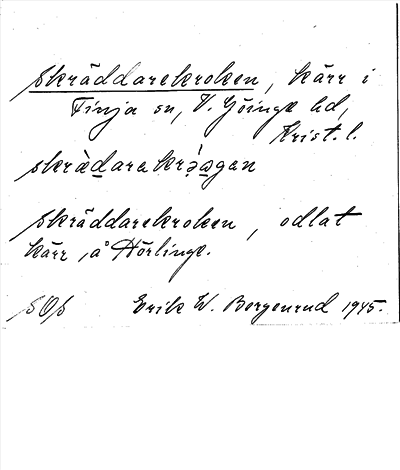 Skräddarekroken, kärr i
Finja sn, V. Göinge hd,
Krist. l.
skrädarekrǝ́ɷgen
Skräddarekroken, odlat
kärr, å Hörlinge.
SOS Erik W. Bergenrud 1945.